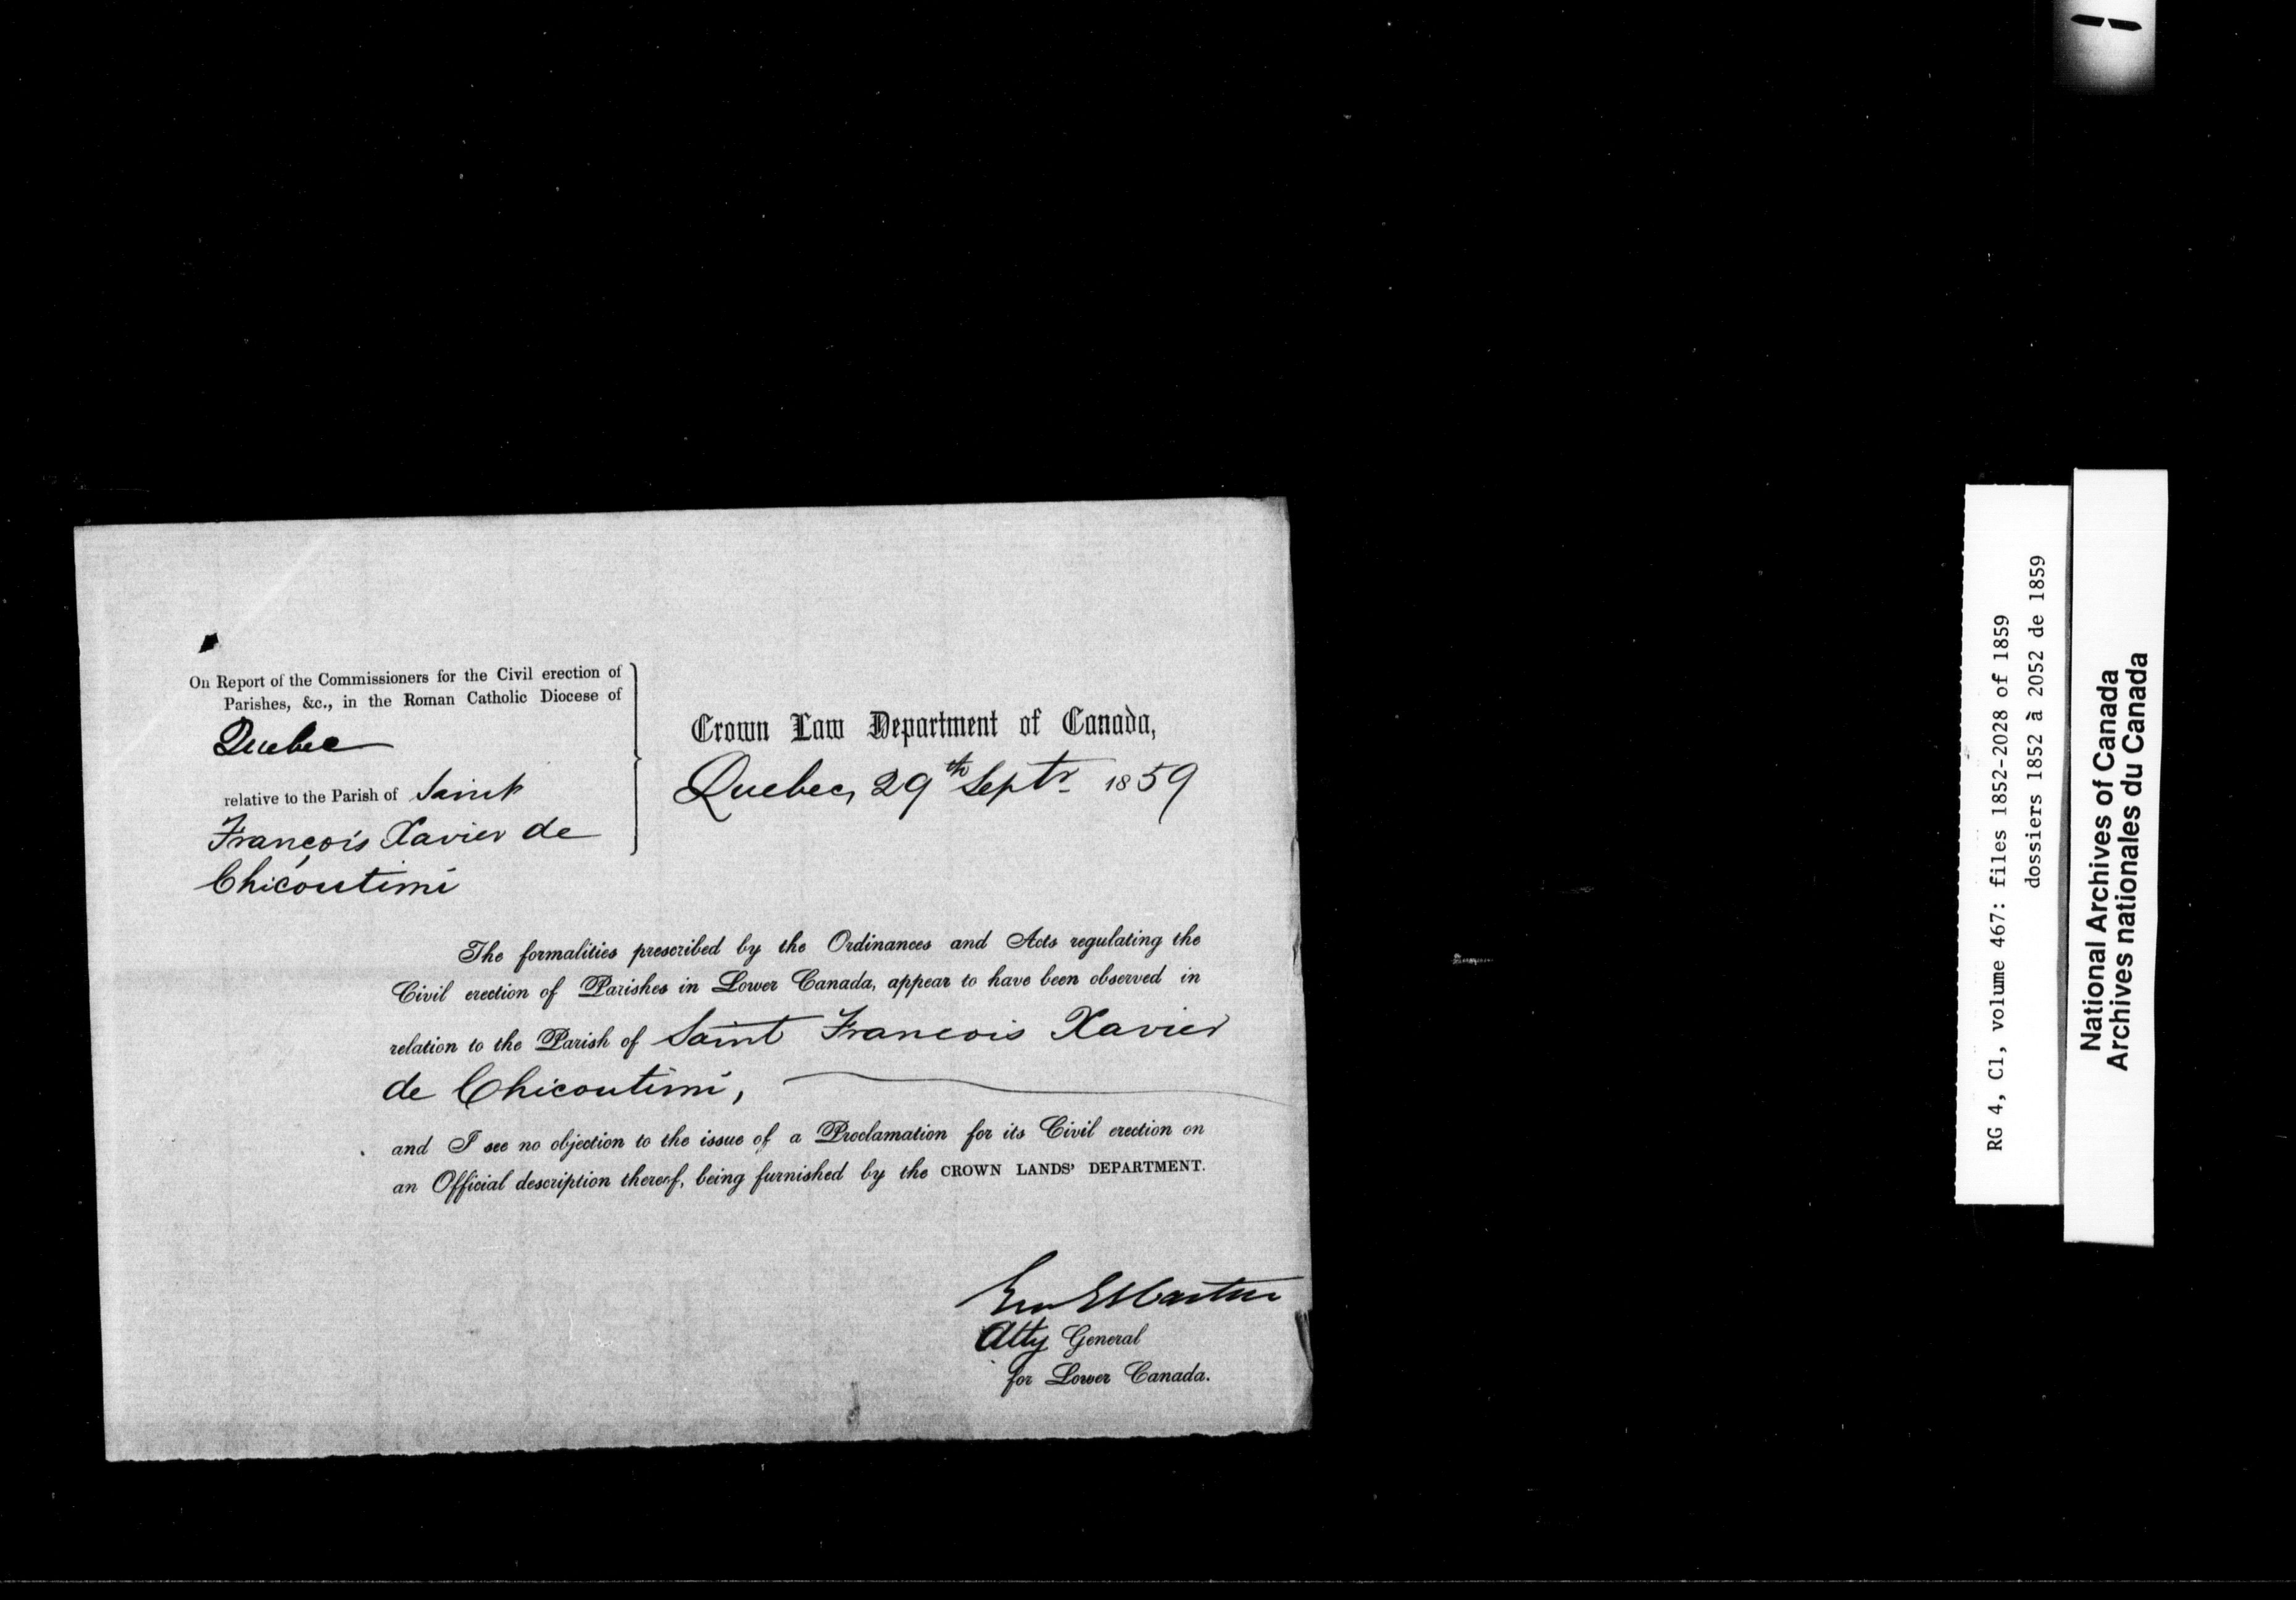 On Report of the Commissioners for the Civil erection of
Parishes, &c., in the Roman Catholic Diocese of
Quebec
relative to the Parish of Saint
François Xavier de
Chicoutimi
Crown Law Department of Canada,
Quebec, 29th Septr 1859
The formalities prescribed by the Ordinances and Acts regulating the
Civil erection of Parishes in Lower Canada, appear to have been observed in
relation to the Parish of Saint Francois Xavier
de Chicoutimi,
and I see no objection to the issue of a Proclamation for its Civil erection on
an Official description thereof, being furnished by the CROWN LANDS' DEPARTMENT.
Geo E Cartier
Atty General
for Lower Canada.
RG 4, C1, volume 467: files 1852-2028 of 1859
dossiers 1852 à 2052 de 1859
National Archives of Canada
Archives nationales du Canada